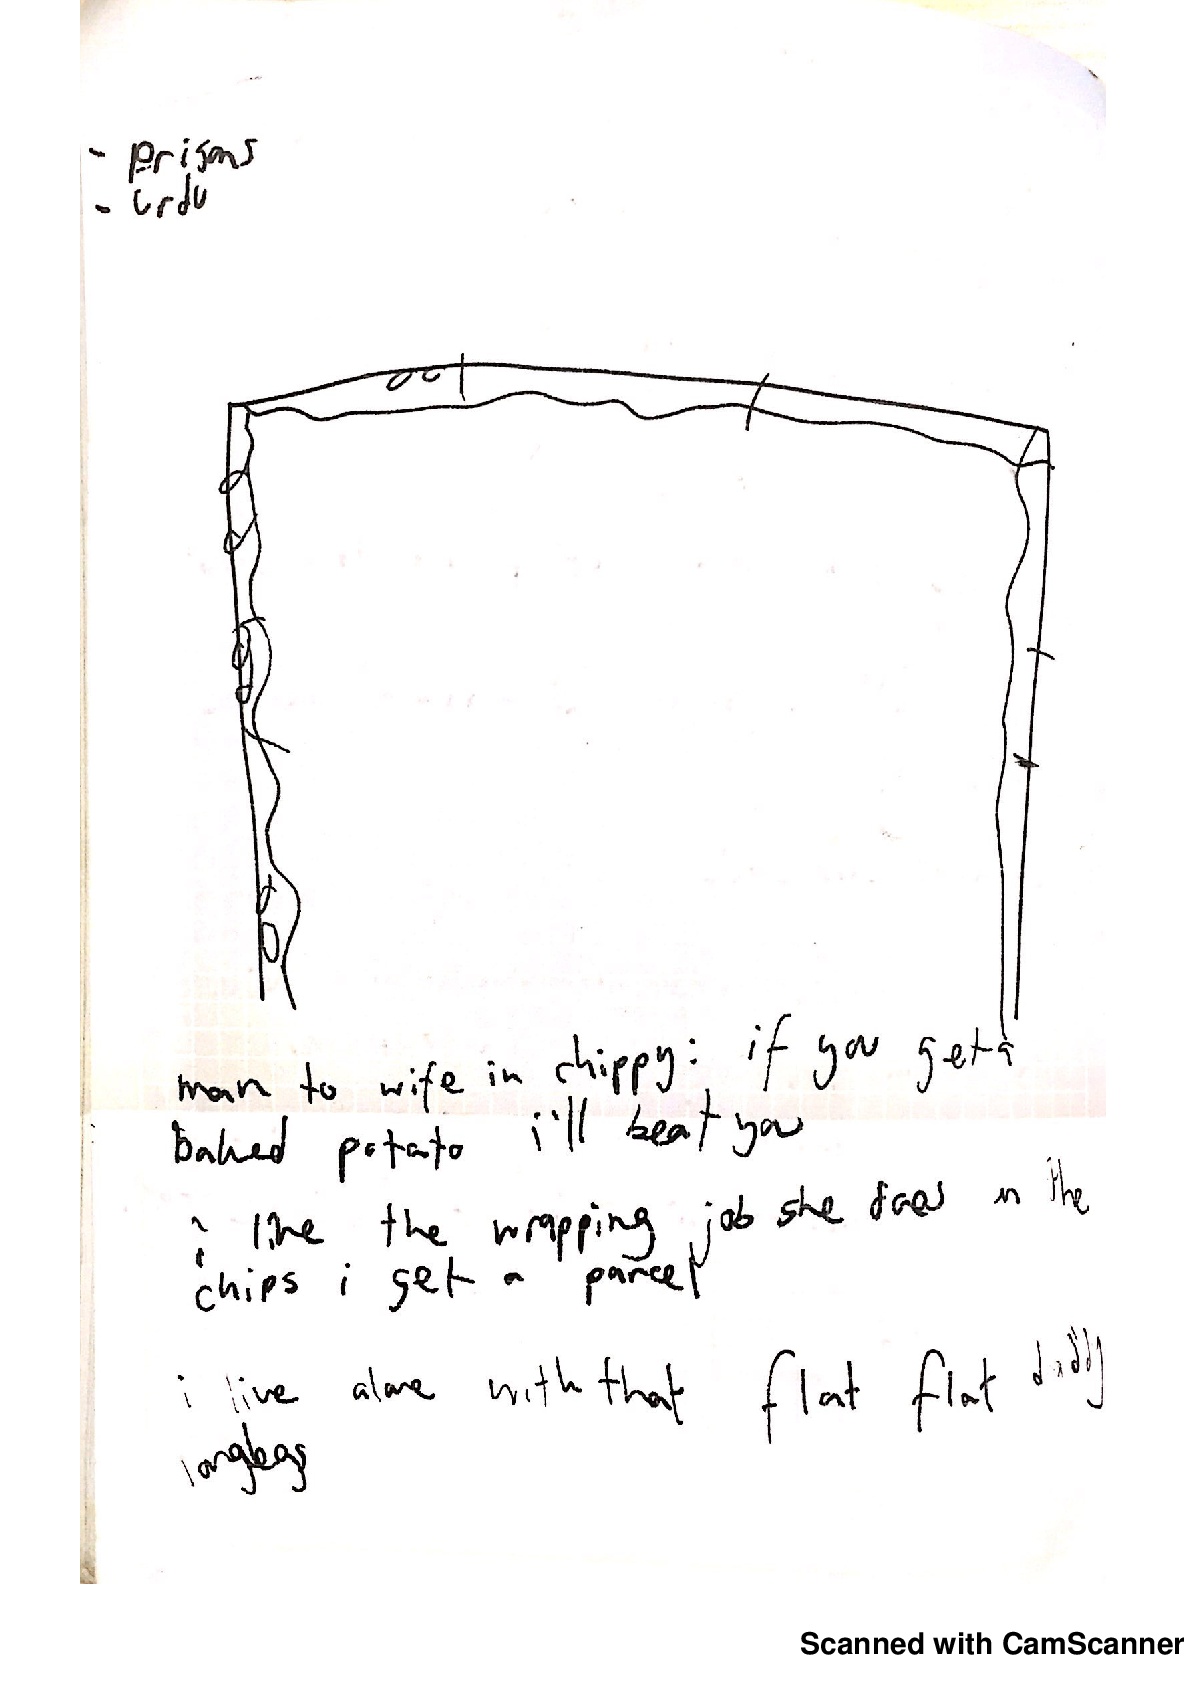 - prisons
- Urdu
man to wife in chippy: if you get a
baked potato i'll beat you
i like the wrapping job she does in the
chips i get a parcel
i live alone with that flat flat daddy
longlegs
Scanned with CamScanner